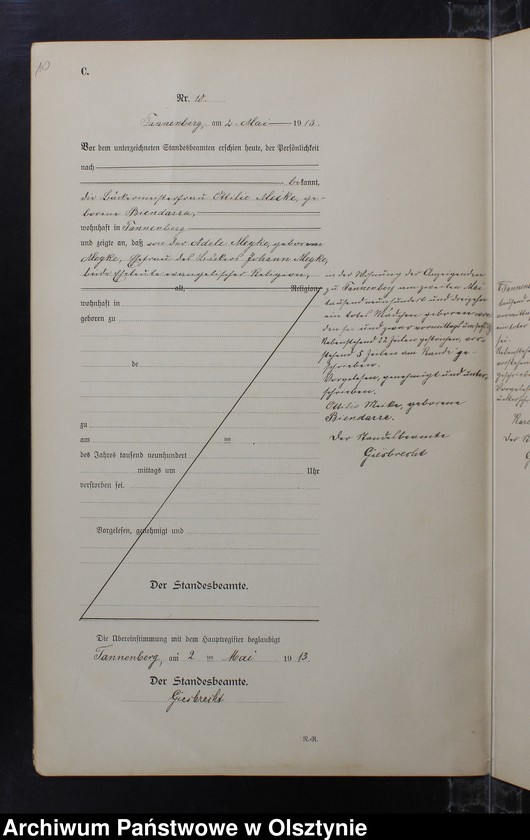 10
C.
Nr. 10.
Tannenberg, am 2. Mai 1913.
Vor dem unterzeichneten Standesbeamten erschien heute, der Persönlichkeit
nach
bekannt,
die Bäckermeisterfrau Ottilie Meike, ge-
borene Biendarra,
wohnhaft in Tannenberg
und zeigte an, daß von der Adele Megke, geborene
Megke, Ehefrau des Bäckers Johann Megke,
beide Eheleute evangelischer Religion,
alt, Religion,
wohnhaft in
geboren zu
de
zu
am im
des Jahres tausend neunhundert
mittags um Uhr
verstorben sei.
Vorgelesen, genehmigt und
Der Standesbeamte.
in der Wohnung der Anzeigenden
zu Tannenberg am zweiten Mai
tausendneunhundert und dreizehn
ein totes Mädchen geboren wor-
den sei und zwar vormittags um
Nebenstehend 22 Zeilen gestrichen, vor-
stehend 5 Zeilen am Rande ge-
schrieben.
Vorgelesen, genehmigt und unter-
schrieben.
Ottilie Meike, geborene
Biendarra.
Der Standesbeamte
Giesbrecht
Die Übereinstimmung mit dem Hauptregister beglaubigt
Tannenberg, am 2 ten Mai 1913.
Der Standesbeamte.
Giesbrecht
N.-R.
Archiwum Państwowe w Olsztynie